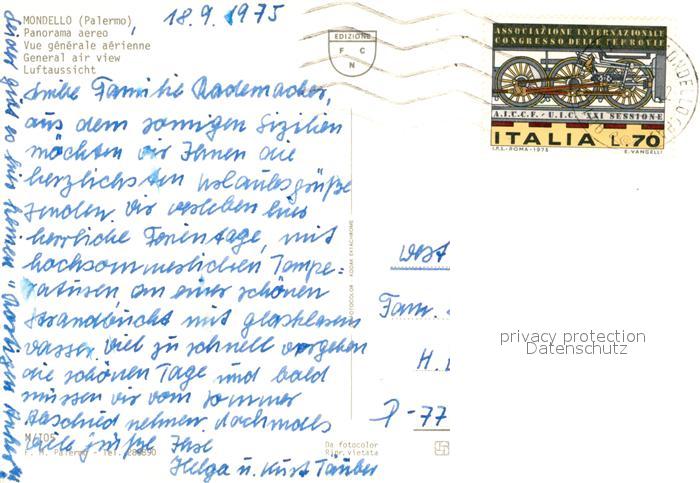 MONDELLO (Palermo)
Panorama aereo
Vue générale aérienne
General air view
Luftaussicht
18.9.1975
EDIZIONE
F C
N
ASSOCIAZIONE INTERNAZIONALE
CONGRESSO DELLE FERROVIE
A.I.C.C.F. - U.I.C. XXI SESSIONE
ITALIA L.70
I.P.S.-ROMA-1975 E. VANGELLI
Liebe Familie Rademacher,
aus dem sonnigen Sizilien
möchten wir Ihnen die
herzlichsten Urlaubsgrüße
senden. Wir verleben hier
herrliche Ferientage, mit
hochsommerlichen Tempe=
raturen, an einer schönen
Strandbucht mit glasklarem
Wasser. Viel zu schnell vergehen
die schönen Tage und bald
müssen wir vom Sommer
Abschied nehmen. Nochmals
viele Grüße Ihre
Helga u. Kurt Täuber
M/105
F. M. Palermo - Tel. 280390
FOTOCOLOR KODAK EKTACHROME
Da fotocolor
Ripr. vietata
West
Fam.
H.
D-77
privacy protection
Datenschutz